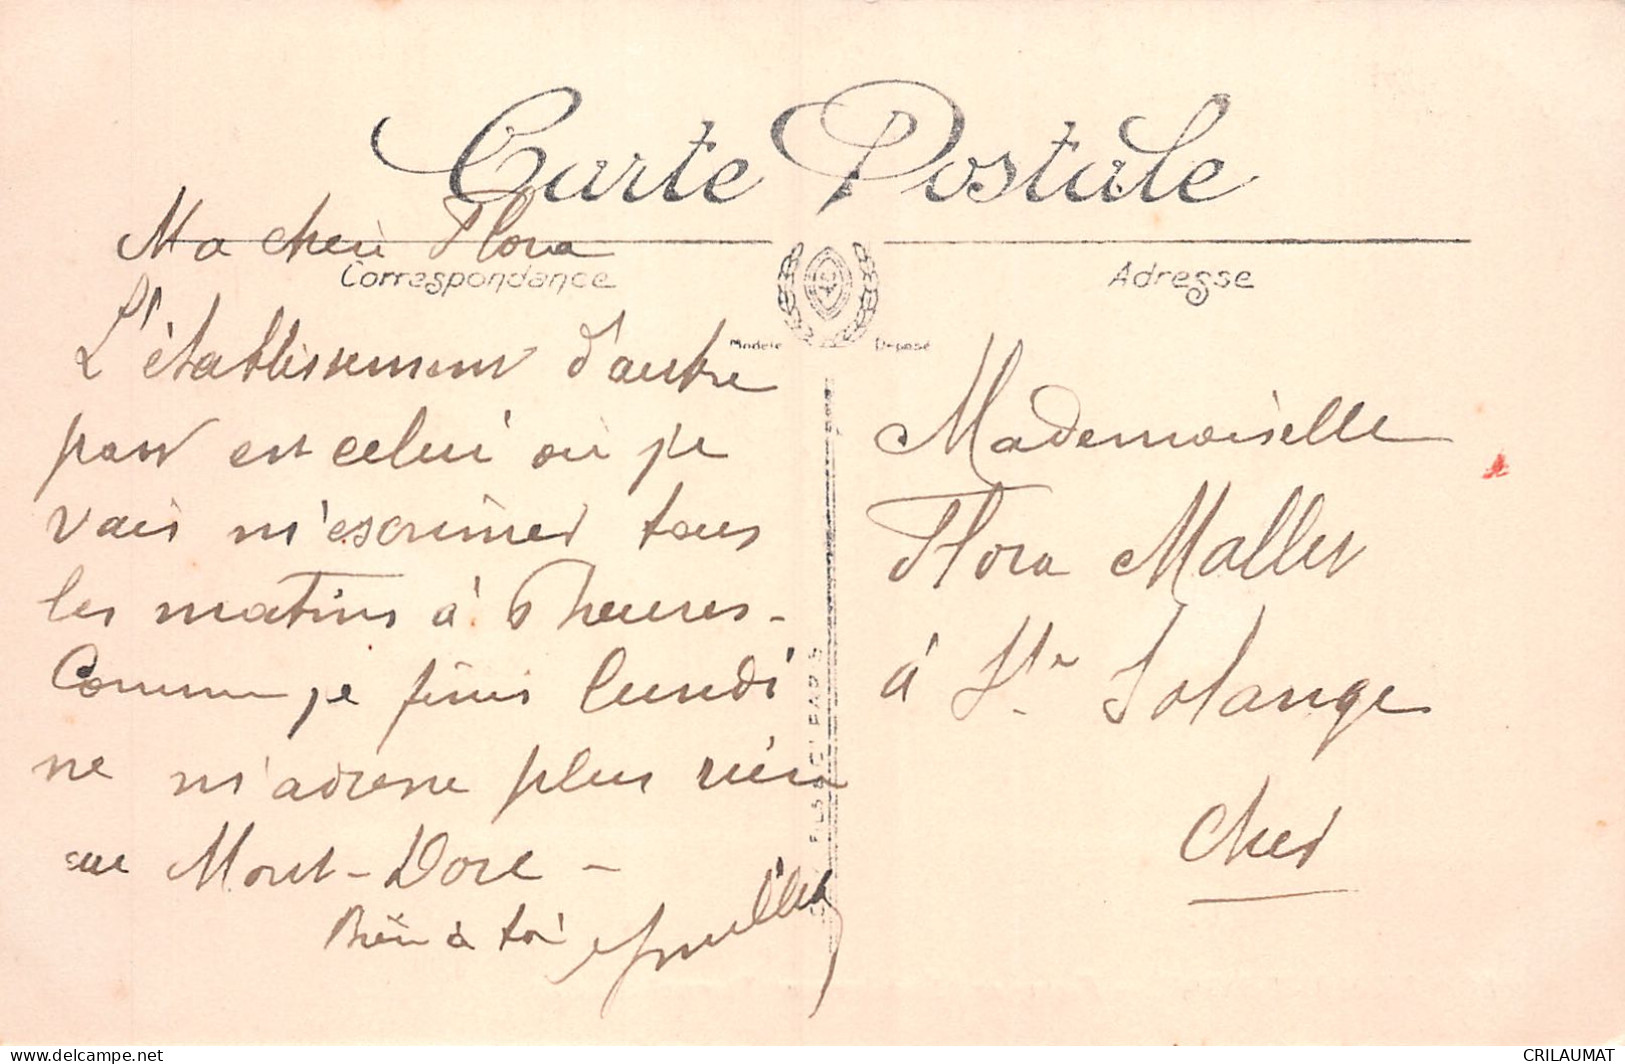 Carte Postale
Ma cheri Flora
Correspondance
Adresse
Modele Déposé
L'établissement d'autre
part est celui où je
vais m'escrimer tous
les matins à 6 heures -
Comme je finis lundi
ne m'adresse plus rien
sur Mont-Dore -
Bien à toi
Mademoiselle
Flora Mallet
à Ste Solange
Cher
FILS PARIS
CRILAUMAT